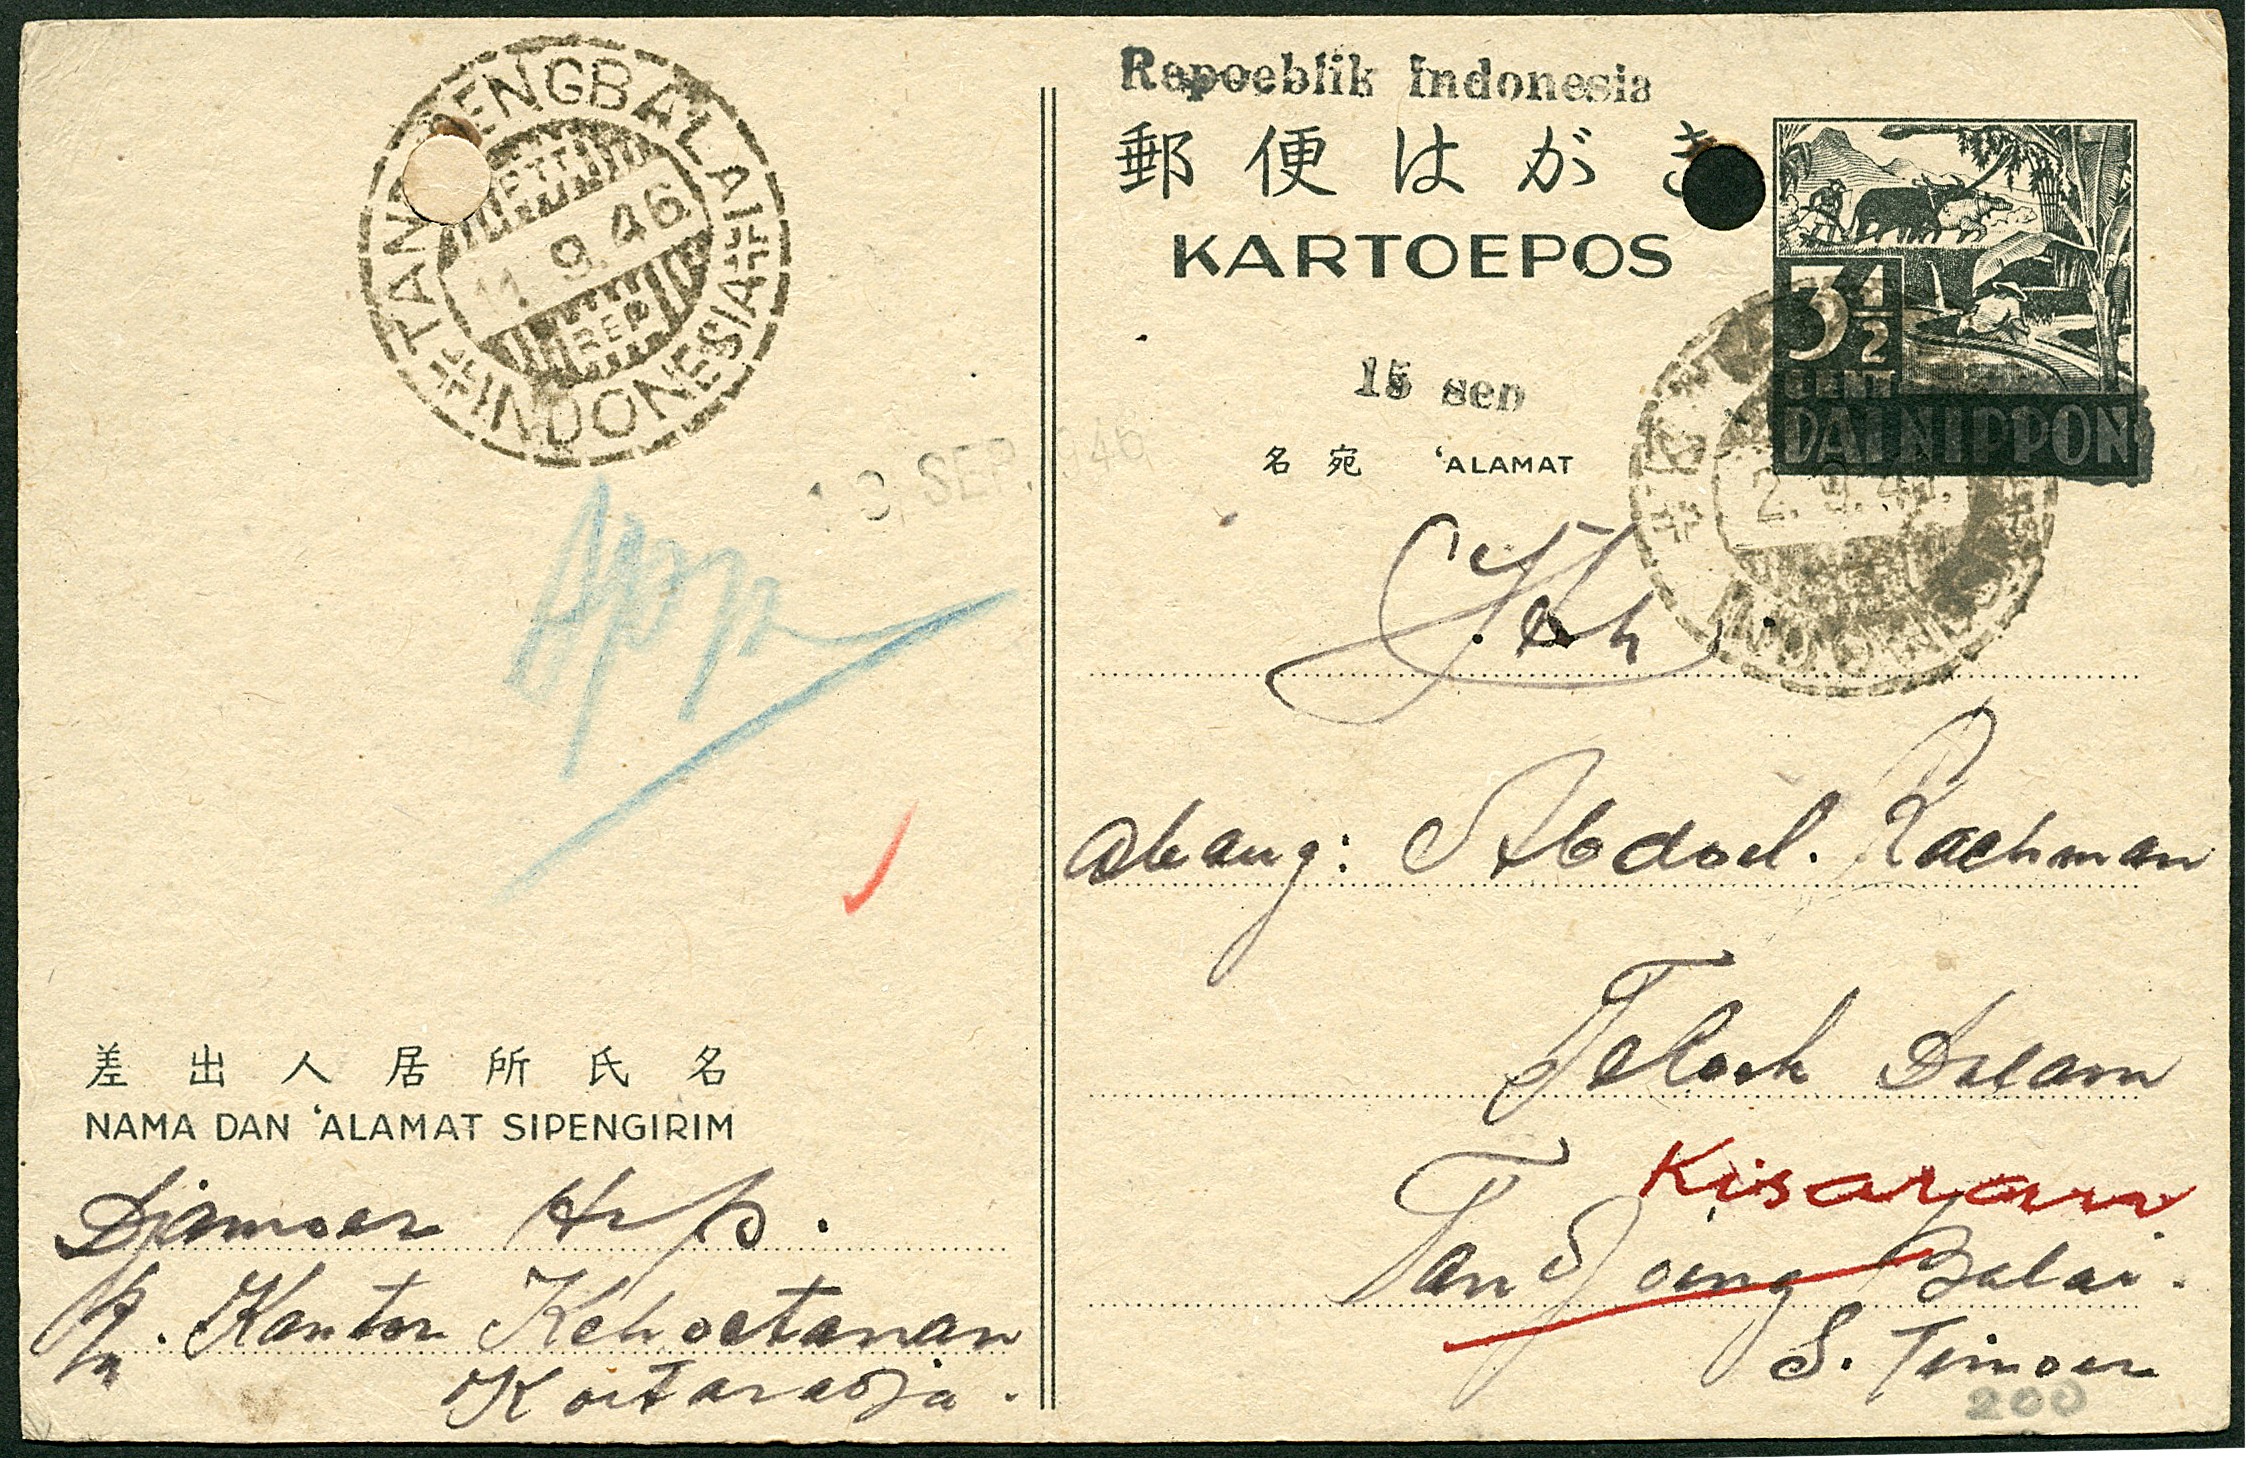 TANDJOENGBALAI
PTT
11.9.46
REP
INDONESIA
13 SEP. 1946
差出人居所氏名
NAMA DAN 'ALAMAT SIPENGIRIM
Djamoer Hrp.
Kantor Kehoetanan
Koetaradja.
Repoeblik Indonesia
郵便はがき
KARTOEPOS
3½
CENT
DAI NIPPON
15 sen
名宛 'ALAMAT
2.9.46
INDONESIA
Jth.
abang: Abdoel. Rachman
Telock Dalam
Kisaran
Tandjoeng Balai.
S. Timoer
200